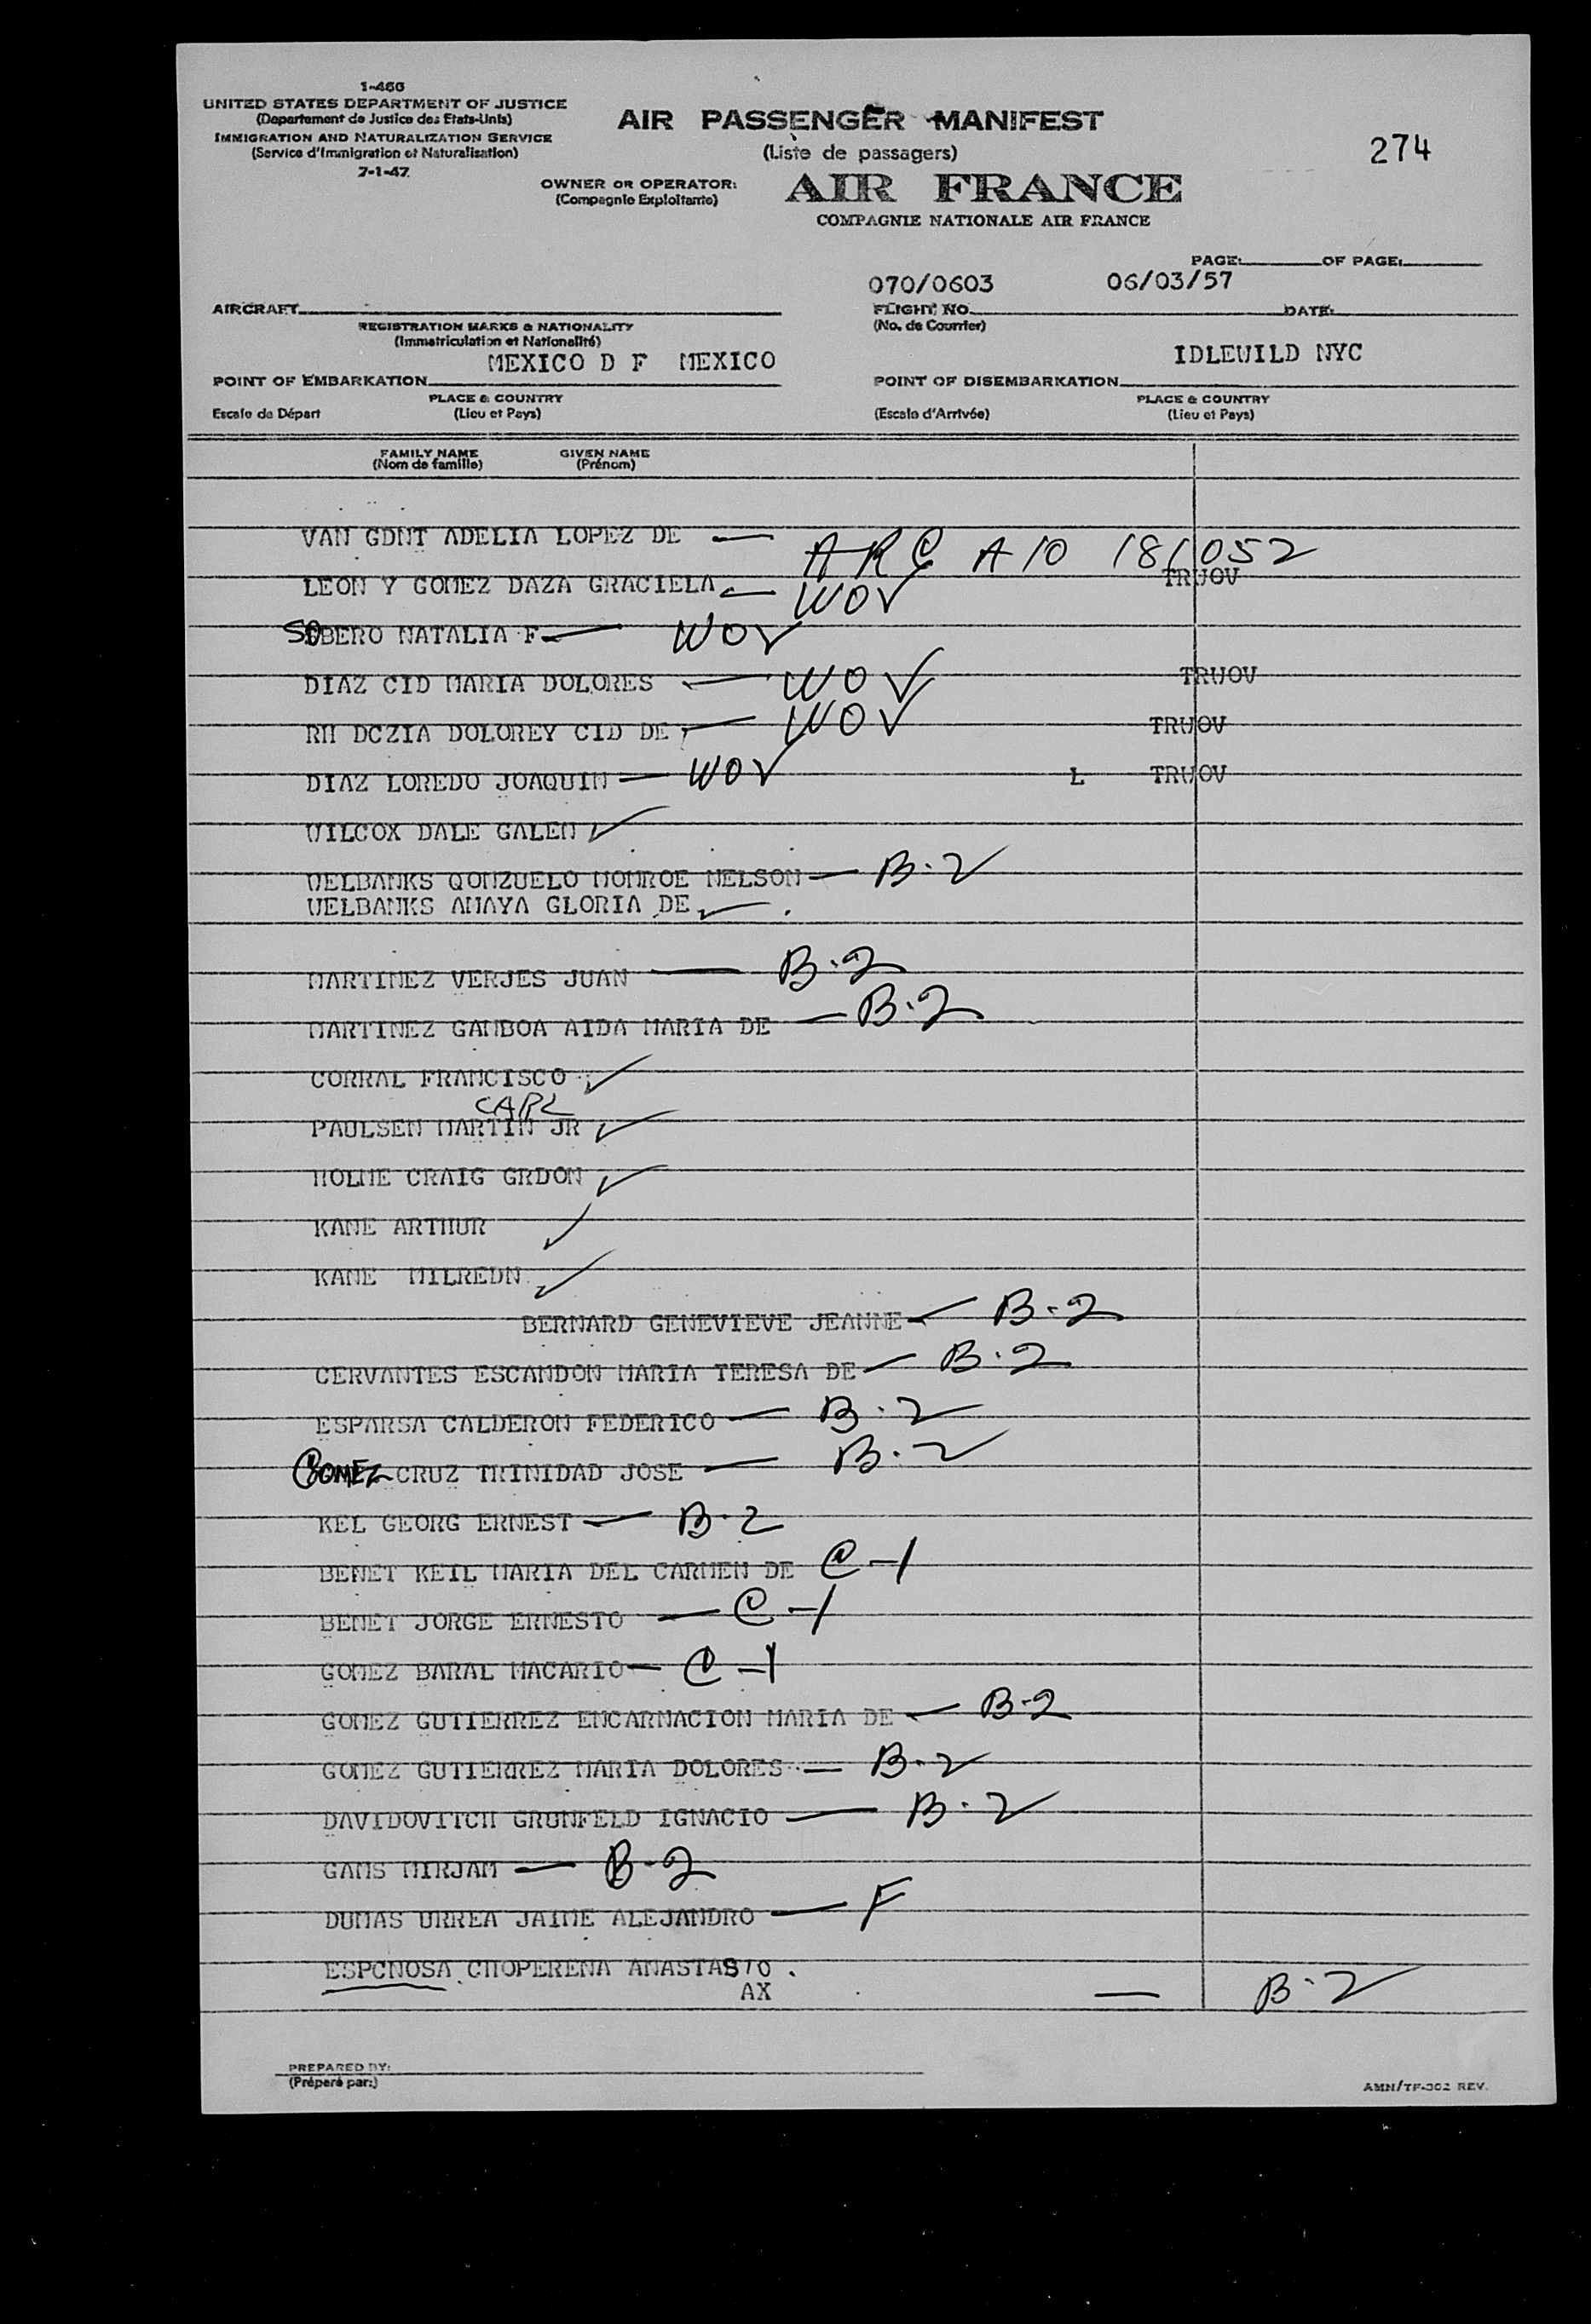 1-466
UNITED STATES DEPARTMENT OF JUSTICE
(Departement de Justice des Etats-Unis)
IMMIGRATION AND NATURALIZATION SERVICE
(Service d'Immigration et Naturalisation)
7-1-47
AIR PASSENGER MANIFEST
(Liste de passagers)
274
OWNER OR OPERATOR:
(Compagnie Exploitante)
AIR FRANCE
COMPAGNIE NATIONALE AIR FRANCE
PAGE: OF PAGE:
070/0603 06/03/57
AIRCRAFT FLIGHT NO. DATE:
REGISTRATION MARKS & NATIONALITY (No. de Courrier)
(Immatriculation et Nationalité)
MEXICO D F MEXICO IDLEWILD NYC
POINT OF EMBARKATION POINT OF DISEMBARKATION
PLACE & COUNTRY PLACE & COUNTRY
Escale de Départ (Lieu et Pays) (Escale d'Arrivée) (Lieu et Pays)
FAMILY NAME GIVEN NAME
(Nom de famille) (Prénom)
VAN GDNT ADELIA LOPEZ DE — ARC A10 181052
LEON Y GOMEZ DAZA GRACIELA — WOV TRWOV
SOBERO NATALIA F — WOV
DIAZ CID MARIA DOLORES — WOV TRWOV
RH DCZIA DOLOREY CID DE — WOV TRWOV
DIAZ LOREDO JOAQUIN — WOV L TRWOV
WILCOX DALE GALEN ✓
WELBANKS QONZUELO MONROE NELSON — B-2
WELBANKS AMAYA GLORIA DE ✓
MARTINEZ VERJES JUAN — B-2
MARTINEZ GAMBOA AIDA MARIA DE — B-2
CORRAL FRANCISCO ✓
CARL
PAULSEN MARTIN JR ✓
HOLME CRAIG GRDON ✓
KANE ARTHUR ✓
KANE MILREDN ✓
BERNARD GENEVIEVE JEANNE — B-2
CERVANTES ESCANDON MARIA TERESA DE — B-2
ESPARSA CALDERON FEDERICO — B-2
GOMEZ CRUZ TRINIDAD JOSE — B-2
KEL GEORG ERNEST — B-2
BENET KEIL MARIA DEL CARMEN DE C-1
BENET JORGE ERNESTO — C-1
GOMEZ BARAL MACARIO — C-1
GOMEZ GUTIERREZ ENCARNACION MARIA DE — B-2
GOMEZ GUTIERREZ MARIA DOLORES — B-2
DAVIDOVITCH GRUNFELD IGNACIO — B-2
GAMS MIRJAM — B-2
DUMAS URREA JAIME ALEJANDRO — F
ESPCNOSA CHOPERENA ANASTASIO .
AX — B-2
PREPARED BY:
(Préparé par:)
AMN/TF-302 REV.